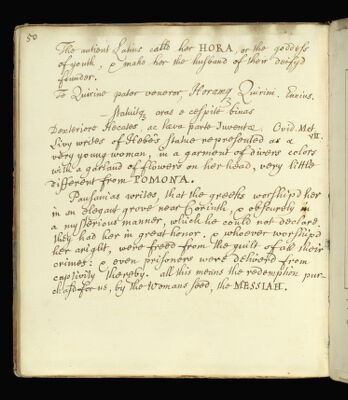 50
The antient Latins calld her HORA, or the goddess
of youth, & make her the husband of their deifyd
founder.
Te Quirine pater veneror, Horamq Quirini. Ennius.
Statuitq aras e cespite binas
Dexteriore Hecates, ac laeva parte Juventae. Ovid. Met. VII.
Livy writes of Hebe's statue represented as a
very young woman, in a garment of divers colors
with a garland of flowers on her head, very little
different from POMONA.
Pausanias writes, that the greeks worshipd her
in an elegant grove near Corinth, & obscurely in
a mysterious manner, which he could not declare.
they had her in great honor. & whoever worshipd
her aright, were freed from the guilt of all their
crimes: & even prisoners were deliverd from
captivity thereby. all this means the redemption pur-
chasd for us, by the womans seed, the MESSIAH.